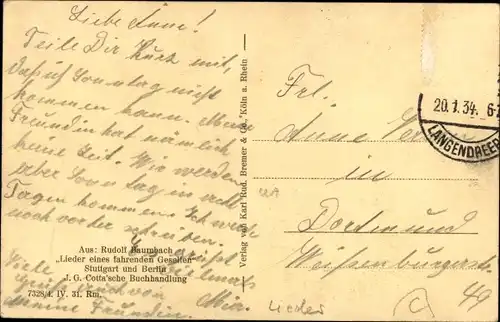 Liebe Anne!
Teile Dir kurz mit,
daß ich Sonntag nicht
kommen kann. Meine
Freundin hat nämlich
keine Zeit. Wir werden
aber Sonntag in acht
Tagen kommen. Ich werde
noch vorher schreiben.
Es grüßt
vielmals
Viele
Grüße auch von
Meine Freundin.
Aus: Rudolf Baumbach
„Lieder eines fahrenden Gesellen“
Stuttgart und Berlin
J. G. Cotta'sche Buchhandlung
7328/4. IV. 31. Rm.
Verlag von Karl Rud. Bremer & Co., Köln a. Rhein
20.1.34. 6-
LANGENDREER
Frl.
Anne
in
Dortmund
Weißenburgerstr.
49
Lieder